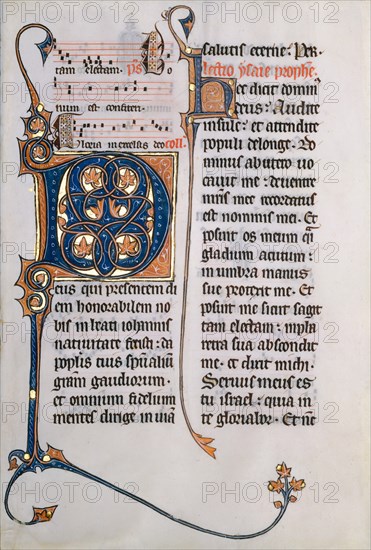 tam electam. ps Bo
num est confiteri.
Gloria in excelsis deo coll.
Deus qui presentem di
em honorabilem no
bis in beati iohannis
natiuitate fecisti: da
populis tuis spiritalium
gratiam gaudiorum.
et omnium fidelium
mentes dirige in uiam
salutis eterne: Per.
lectio ysaie prophete.
Hec dicit dominus
deus: Audite
insule: et attendite
populi de longe. Do
minus ab utero uo
cauit me: de uentre
matris mee recordatus
est nominis mei. Et
posuit os meum quasi
gladium acutum: in
umbra manus
sue protexit me. Et
posuit me sicut sagit
tam electam: in pha
retra sua abscondit
me. et dixit michi.
Seruus meus es
tu israel: quia in
te gloriabor. Et nunc
PHOTO12